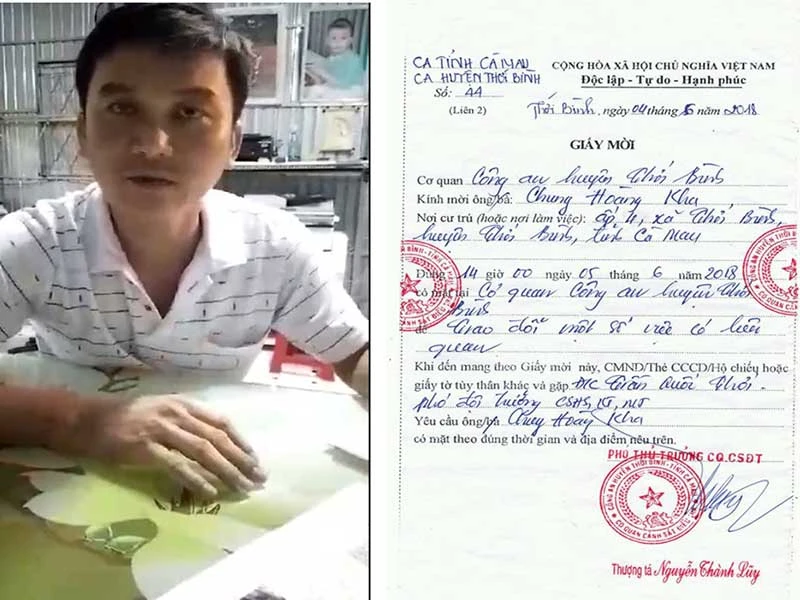 CA TỈNH CÀ MAU
CA HUYỆN THỚI BÌNH
Số: 44
(Liên 2)
CỘNG HÒA XÃ HỘI CHỦ NGHĨA VIỆT NAM
Độc lập - Tự do - Hạnh phúc
Thới Bình, ngày 04 tháng 6 năm 2018
GIẤY MỜI
Cơ quan Công an huyện Thới Bình
Kính mời ông/bà: Chung Hoàng Kha
Nơi cư trú (hoặc nơi làm việc): ấp 11, xã Thới Bình,
huyện Thới Bình, tỉnh Cà Mau
Đúng 14 giờ 00 ngày 05 tháng 6 năm 2018
có mặt tại Cơ quan Công an huyện Thới
Bình
để Trao đổi một số việc có liên
quan
Khi đến mang theo Giấy mời này, CMND/Thẻ CCCD/Hộ chiếu hoặc
giấy tờ tùy thân khác và gặp ĐC Trần Quốc Thới -
phó đội trưởng CSHS, KT, MT
Yêu cầu ông/bà Chung Hoàng Kha
có mặt theo đúng thời gian và địa điểm nêu trên.
PHÓ THỦ TRƯỞNG CQ.CSĐT
CÔNG AN HUYỆN THỚI BÌNH - TỈNH CÀ MAU
CƠ QUAN CẢNH SÁT ĐIỀU
Thượng tá Nguyễn Thành Lũy